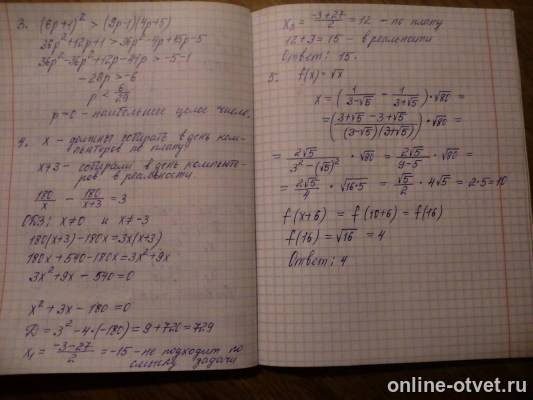 3. (6p+1)² > (9p-1)(4p+5)
36p²+12p+1 > 36p²-4p+45p-5
36p²-36p²+12p-41p > -5-1
-29p > -6
p < 6/29
p=0 - наибольшее целое число.
4. x - должны собирать в день ком-
пьютеров по плану
x+3 - собирали в день компьюте-
ров в реальности
180/x - 180/(x+3) = 3
ОДЗ: x≠0 и x≠-3
180(x+3)-180x=3x(x+3)
180x+540-180x=3x²+9x
3x²+9x-540=0
x²+3x-180=0
D=3²-4·(-180)=9+720=729
x₁=(-3-27)/2=-15 - не подходит по
смыслу задачи
x₂=(-3+27)/2=12 - по плану
12+3=15 - в реальности
Ответ: 15.
5. f(x)=√x
x=(1/(3-√5) - 1/(3+√5))·√80=
=((3+√5-3+√5)/((3-√5)(3+√5)))·√80=
=2√5/(3²-(√5)²)·√80=2√5/(9-5)·√80=
=2√5/4·√16·5=√5/2·4√5=2·5=10
f(x+6)=f(10+6)=f(16)
f(16)=√16=4
Ответ: 4
online-otvet.ru